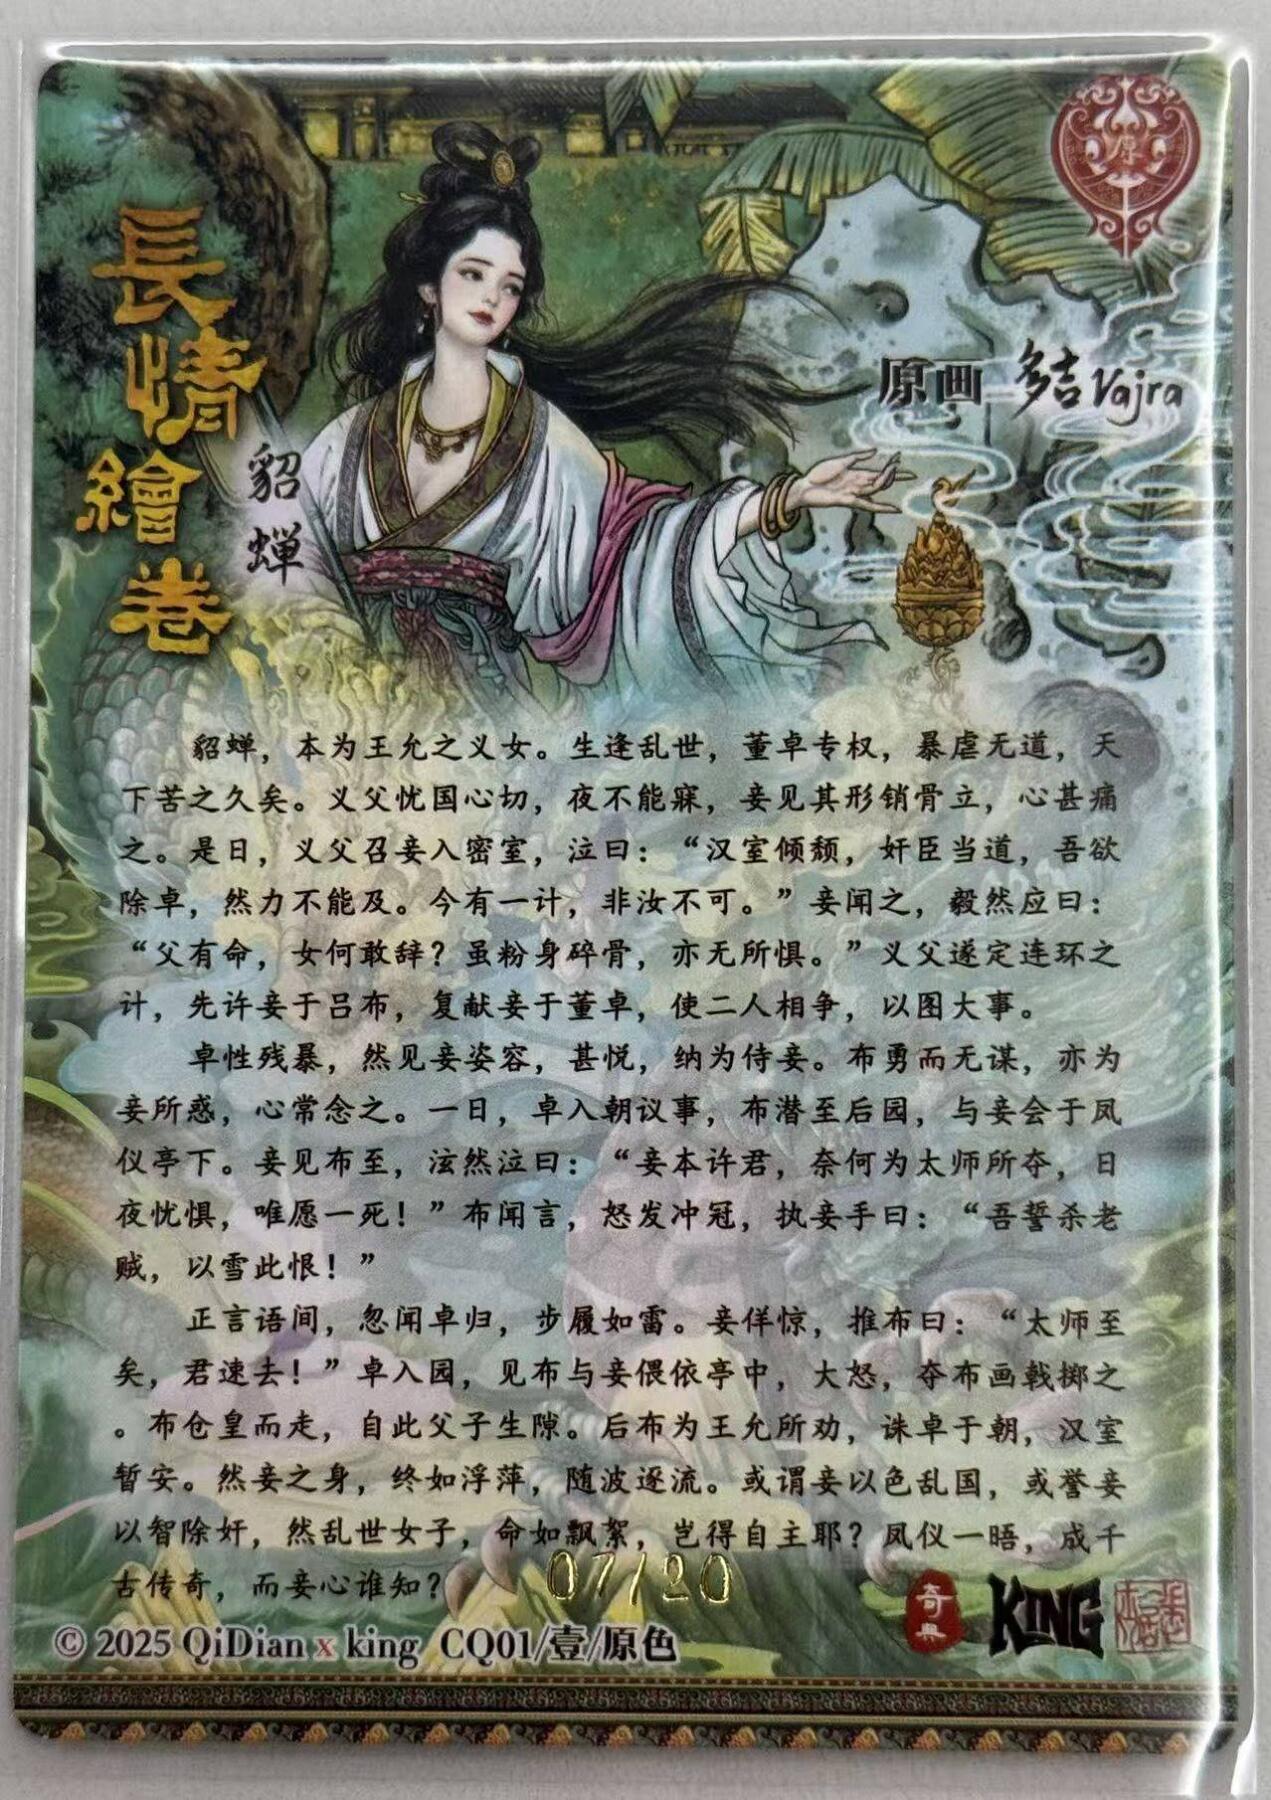 原
長情繪卷
貂蝉
原画 多吉 Vajra
貂蝉，本为王允之义女。生逢乱世，董卓专权，暴虐无道，天
下苦之久矣。义父忧国心切，夜不能寐，妾见其形销骨立，心甚痛
之。是日，义父召妾入密室，泣曰：“汉室倾颓，奸臣当道，吾欲
除卓，然力不能及。今有一计，非汝不可。”妾闻之，毅然应曰：
“父有命，女何敢辞？虽粉身碎骨，亦无所惧。”义父遂定连环之
计，先许妾于吕布，复献妾于董卓，使二人相争，以图大事。
卓性残暴，然见妾姿容，甚悦，纳为侍妾。布勇而无谋，亦为
妾所惑，心常念之。一日，卓入朝议事，布潜至后园，与妾会于凤
仪亭下。妾见布至，泫然泣曰：“妾本许君，奈何为太师所夺，日
夜忧惧，唯愿一死！”布闻言，怒发冲冠，执妾手曰：“吾誓杀老
贼，以雪此恨！”
正言语间，忽闻卓归，步履如雷。妾佯惊，推布曰：“太师至
矣，君速去！”卓入园，见布与妾偎依亭中，大怒，夺布画戟掷之
。布仓皇而走，自此父子生隙。后布为王允所劝，诛卓于朝，汉室
暂安。然妾之身，终如浮萍，随波逐流。或谓妾以色乱国，或誉妾
以智除奸，然乱世女子，命如飘絮，岂得自主耶？凤仪一晤，成千
古传奇，而妾心谁知？
07/20
奇典
KING
© 2025 QiDian x king CQ01/壹/原色